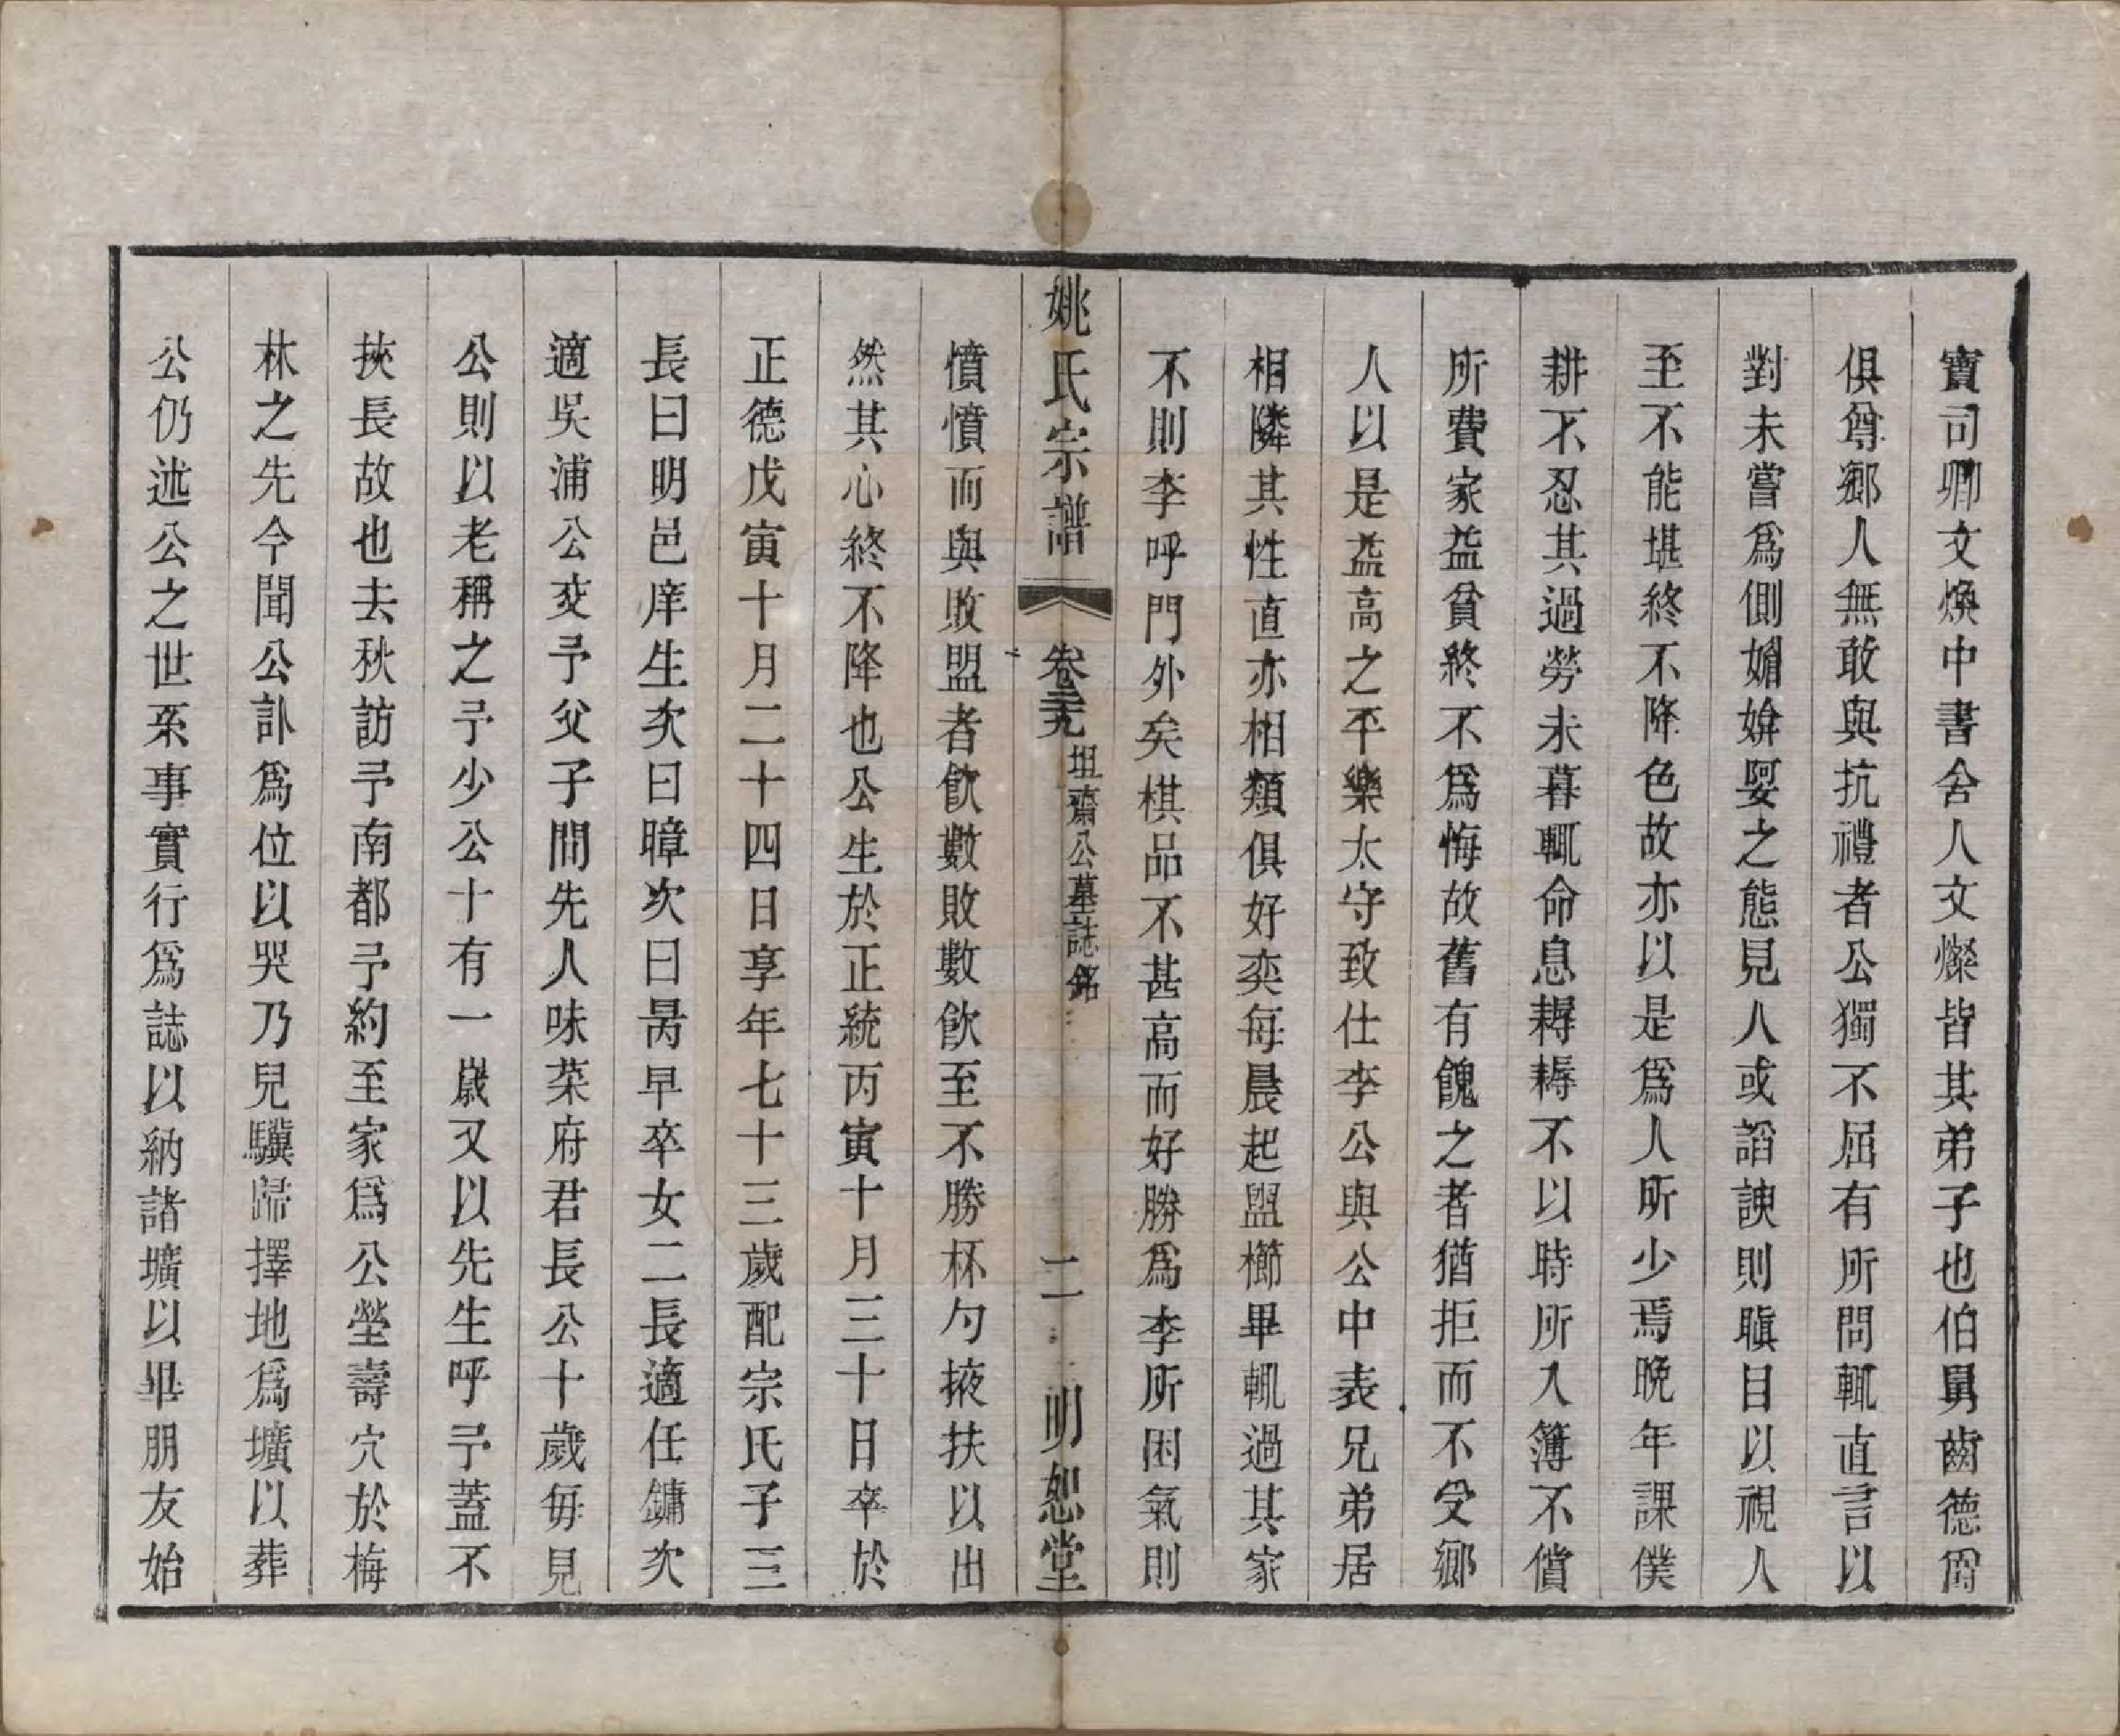 寶司卿文煥中書舍人文燦皆其弟子也伯舅齒德爵
俱尊鄉人無敢與抗禮者公獨不屈有所問輒直言以
對未嘗爲側媚媕婴之態見人或謟諛則瞋目以視人
至不能堪終不降色故亦以是爲人所少焉晚年課僕
耕不忍其過勞未暮輒命息耨耨不以時所入簿不償
所費家益貧終不爲悔故舊有餽之者猶拒而不受鄉
人以是益高之平樂太守致仕李公與公中表兄弟居
相隣其性直亦相類俱好奕每晨起盥櫛畢輒過其家
不則李呼門外矣棋品不甚高而好勝爲李所困氣則
姚氏宗譜
卷三十九
坦齋公墓誌銘
二
明恕堂
憤憤而與敗盟者飲數敗數飲至不勝杯勺掖扶以出
然其心終不降也公生於正統丙寅十月三十日卒於
正德戊寅十月二十四日享年七十三歲配宗氏子三
長曰明邑庠生次曰暲次曰昺早卒女二長適任鏞次
適吳浦公交予父子間先人味菜府君長公十歲每見
公則以老稱之予少公十有一歲又以先生呼予蓋不
挾長故也去秋訪予南都予約至家爲公塋壽穴於梅
林之先今聞公訃爲位以哭乃兒驥歸擇地爲壙以葬
公仍述公之世系事實行爲誌以納諸壙以畢朋友始